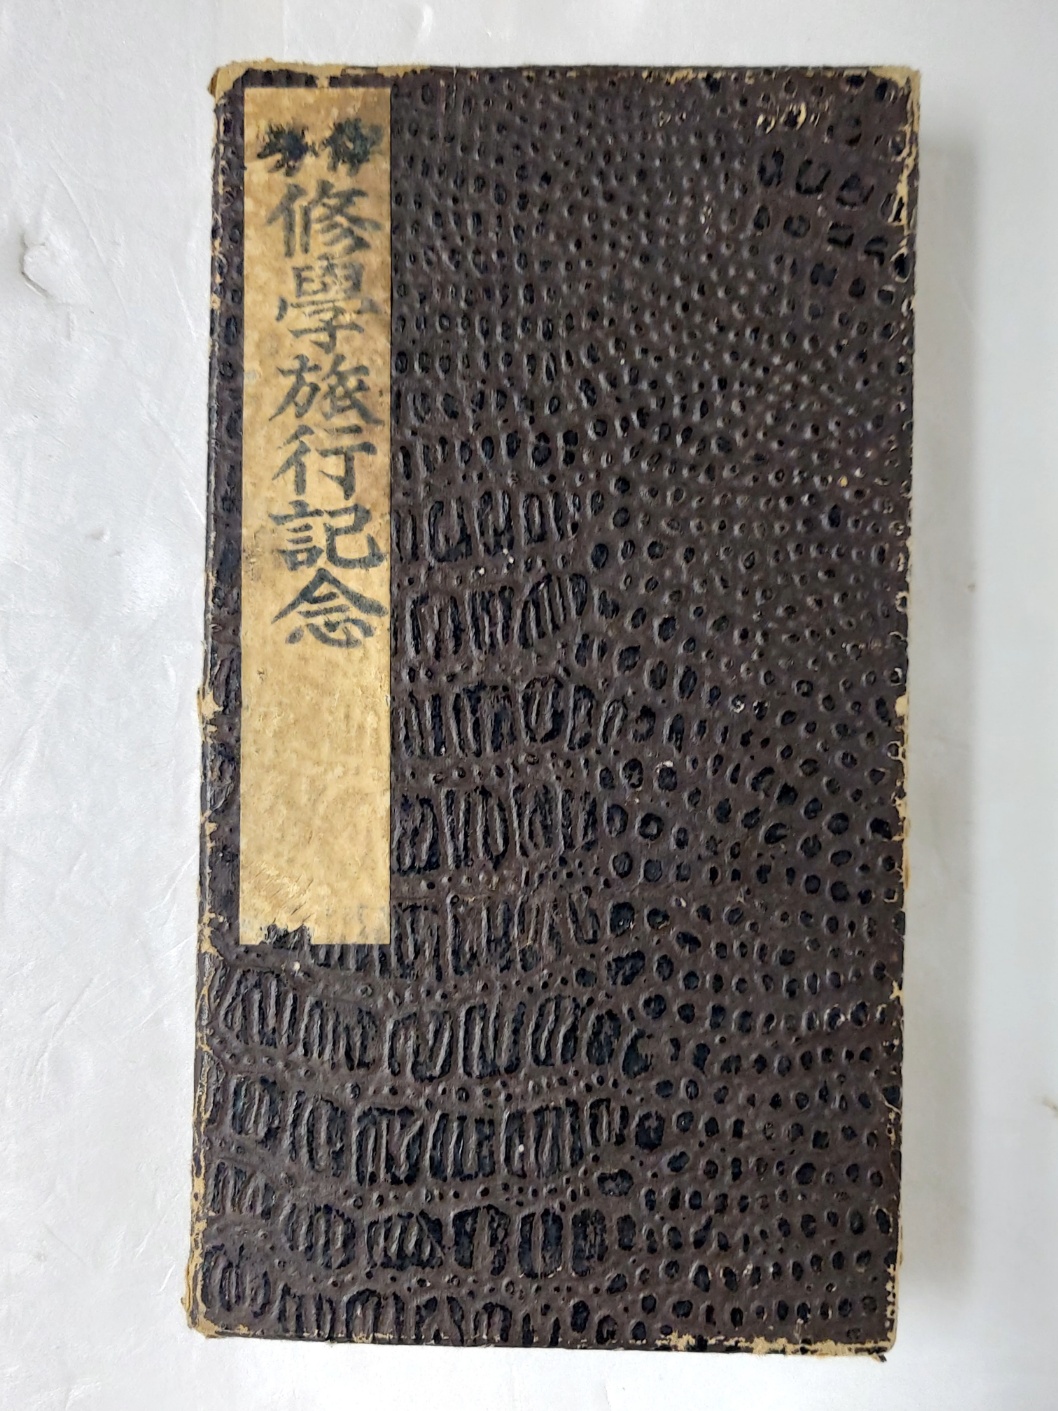 修學旅行記念